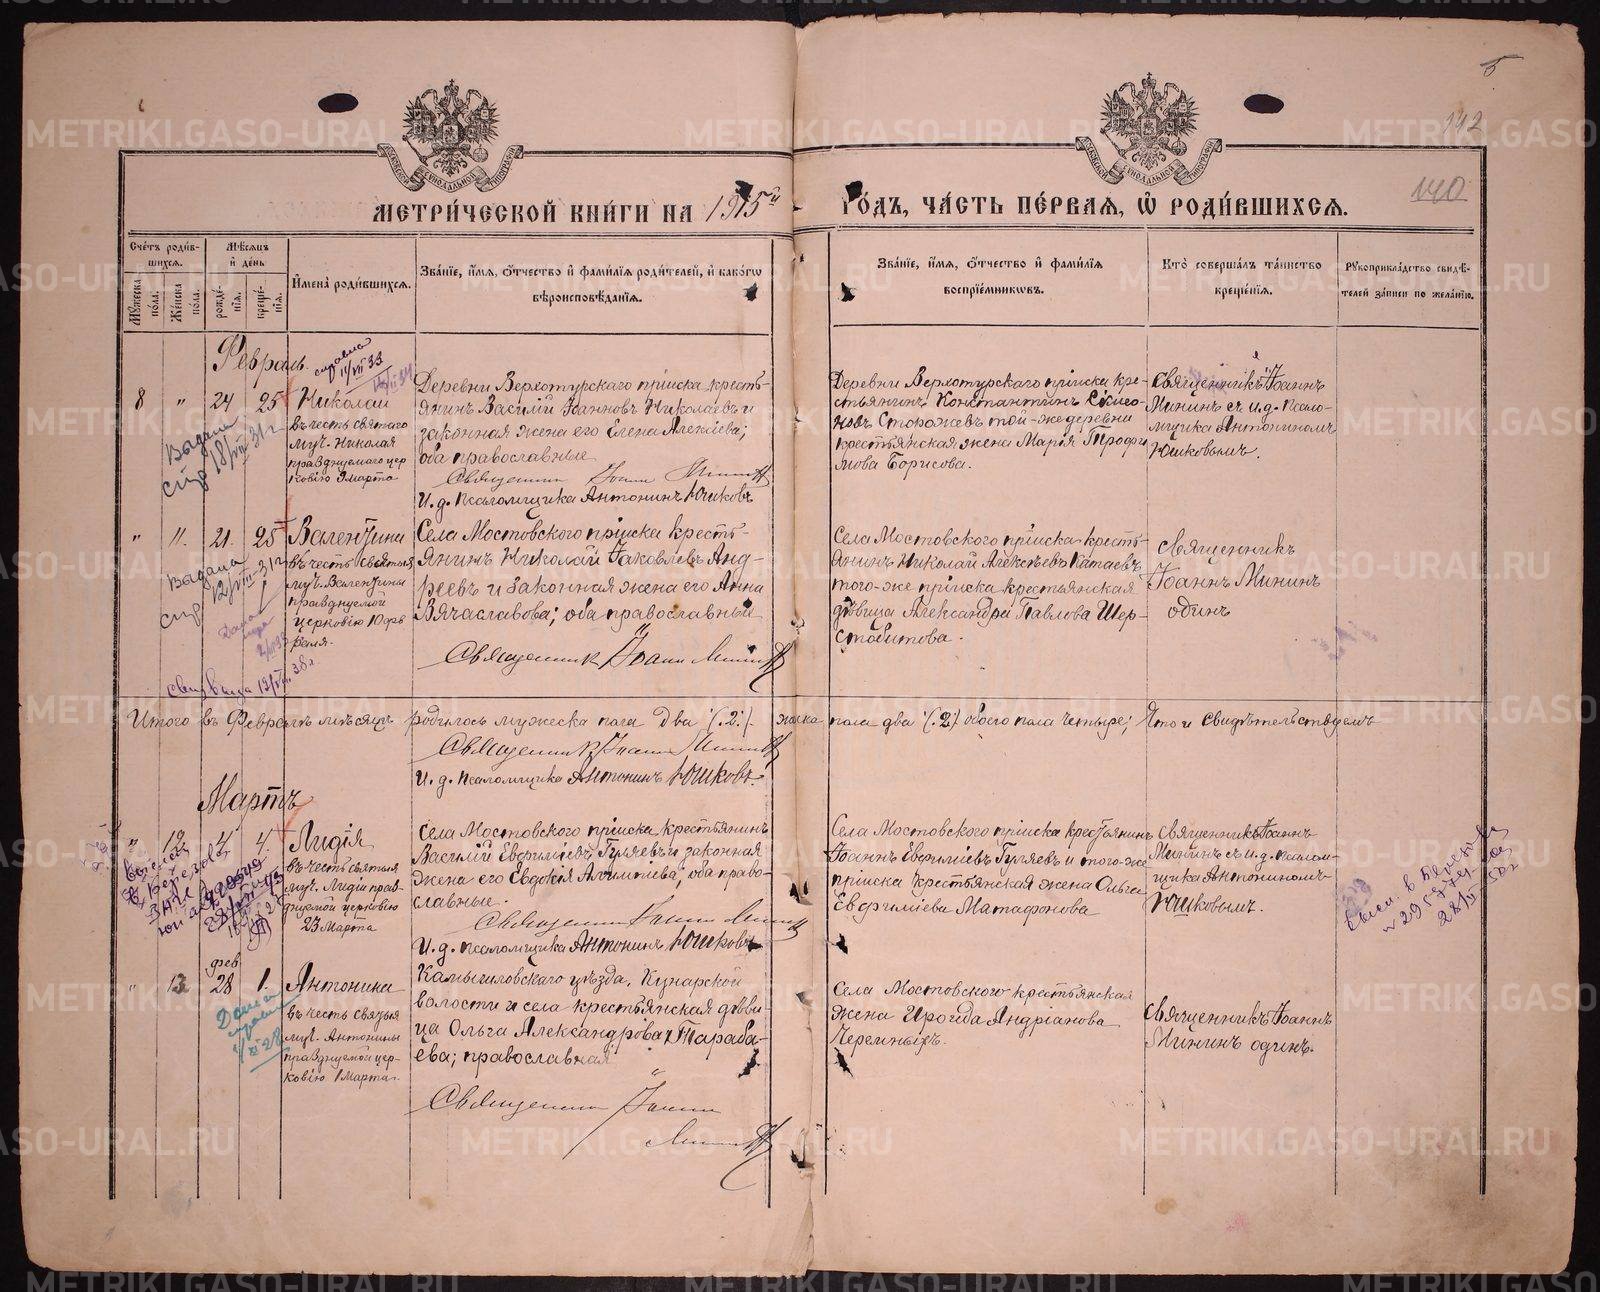 142
140
МЕТРИ́ЧЕСКОЙ КНИ́ГИ НА 1915й ГО́ДЪ, ЧА́СТЬ ПЕ́РВАЯ, Ѡ҆ РОДИ́ВШИХСЯ.
Сче́тъ роди́вшихся.
Мужеска по́ла.
Же́нска по́ла.
Мѣ́сяцъ и҆ де́нь
рожде́нїя.
креще́нїя.
И҆мена̀ роди́вшихся.
Зва́нїе, и҆́мя, ѻ҆́тчество и҆ фами́лїя роди́телей, и҆ како́гѡ
вѣроисповѣ́данїя.
Зва́нїе, и҆́мя, ѻ҆́тчество и҆ фами́лїя
воспрїе́мникѡвъ.
Кто̀ соверша́лъ та́инство
креще́нїя.
Рꙋкоприкла́дство свидѣ́-
телей за́писи по жела́нїю.
Февраль.
справка
11/VII 33
8 " 24 25
Николай
въ честь святаго
муч. Николая
празднуемаго цер
ковію 9 марта
Деревни Верхотурскаго пріиска кресть-
янинъ Василій Іоанновъ Николаевъ и
законная жена его Елена Алексіева;
оба православные
Священник Іоанн Минин
И. д. псаломщика Антонинъ Юшковъ
Деревни Верхотурскаго пріиска кре-
стьянинъ Константинъ Симео-
новъ Сторожевъ той-же деревни
крестьянская жена Марія Трофи
мова Борисова.
Священникъ Іоаннъ
Мининъ съ и. д. псало-
мщика Антониномъ
Юшковымъ.
Выдана
спр 18/VII 31 г
" 11. 21. 25
Валентина
въ честь святыя
муч. Валентины
празднуемой
церковію 10 фев
раля.
Села Мостовского пріиска кресть-
янинъ Николай Іаковлевъ Анд-
реевъ и законная жена его Анна
Вячаславова; оба православные
Священник Іоанн Минин
Села Мостовского пріиска кресть-
янинъ Николай Алексѣевъ Катаевъ
того-же пріиска крестьянская
дѣвица Александра Павлова Шер-
стобитова.
Священникъ
Іоаннъ Мининъ
одинъ
Выдана
спр 12/VIII-31 г
Итого въ Февралѣ мѣсяцѣ родилось мужеска пола два (.2.) женска пола два (.2.) обоего пола четыре; что и свидѣтельствуемъ
Священник Іоанн Минин
И. д. псаломщика Антонинъ Юшковъ.
Мартъ
" 12 4 4.
Лидія
въ честь святыя
муч. Лидіи праз-
днуемой церковію
23 Марта
Села Мостовского пріиска крестьянинъ
Василій Евфиміевъ Гуляевъ и законная
жена его Евдокія; оба право-
славные.
Священник Іоанн Минин
И. д. псаломщика Антонинъ Юшковъ
Села Мостовского пріиска крестьянинъ
Іоаннъ Евфиміевъ Гуляевъ и того-же
пріиска крестьянская жена Ольга
Евфиміева Матафонова
Священникъ Іоаннъ
Мининъ съ и. д. псалом-
щика Антониномъ
Юшковымъ.
фев
" 13 28 1.
Антонина
въ честь святыя
муч. Антонины
празднуемой цер-
ковію 1 Марта.
Камышловскаго уѣзда, Кунарской
волости и села крестьянская дѣви-
ца Ольга Александрова Тараба-
ева; православная
Священник Іоанн
Минин
Села Мостовского крестьянская
жена Ироида Андріанова
Черемныхъ.
Священникъ Іоаннъ
Мининъ одинъ.
METRIKI.GASO-URAL.RU